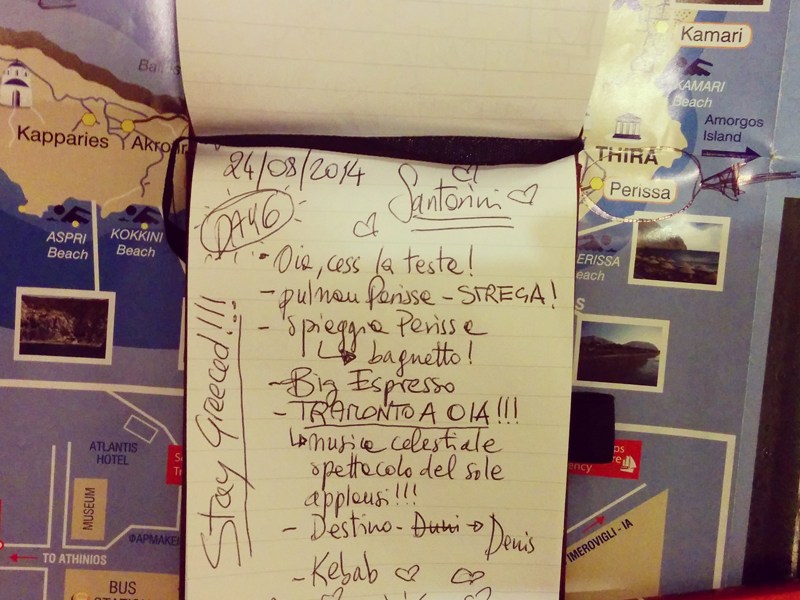 Kamari
KAMARI
Beach
Amorgos
Island
THIRA
Perissa
Kapparies
ASPRI
Beach
KOKKINI
Beach
24/08/2014
Santorini
DAY6
Oia, cess la testa!
- pulman Perissa - STREGA!
- Spieggia Perissa
bagnetto!
- Big Espresso
- TRAMONTO A OIA!!!
musica celestiale
spettacolo del sole
applausi!!!
- Destino - Duni → Denis
- Kebab
Stay Greeced!!!
ERISSA
each
ATLANTIS
HOTEL
MUSEUM
ΦΑΡΜΑΚΕ
TO ATHINIOS
BUS
IMEROVIGLI - IA